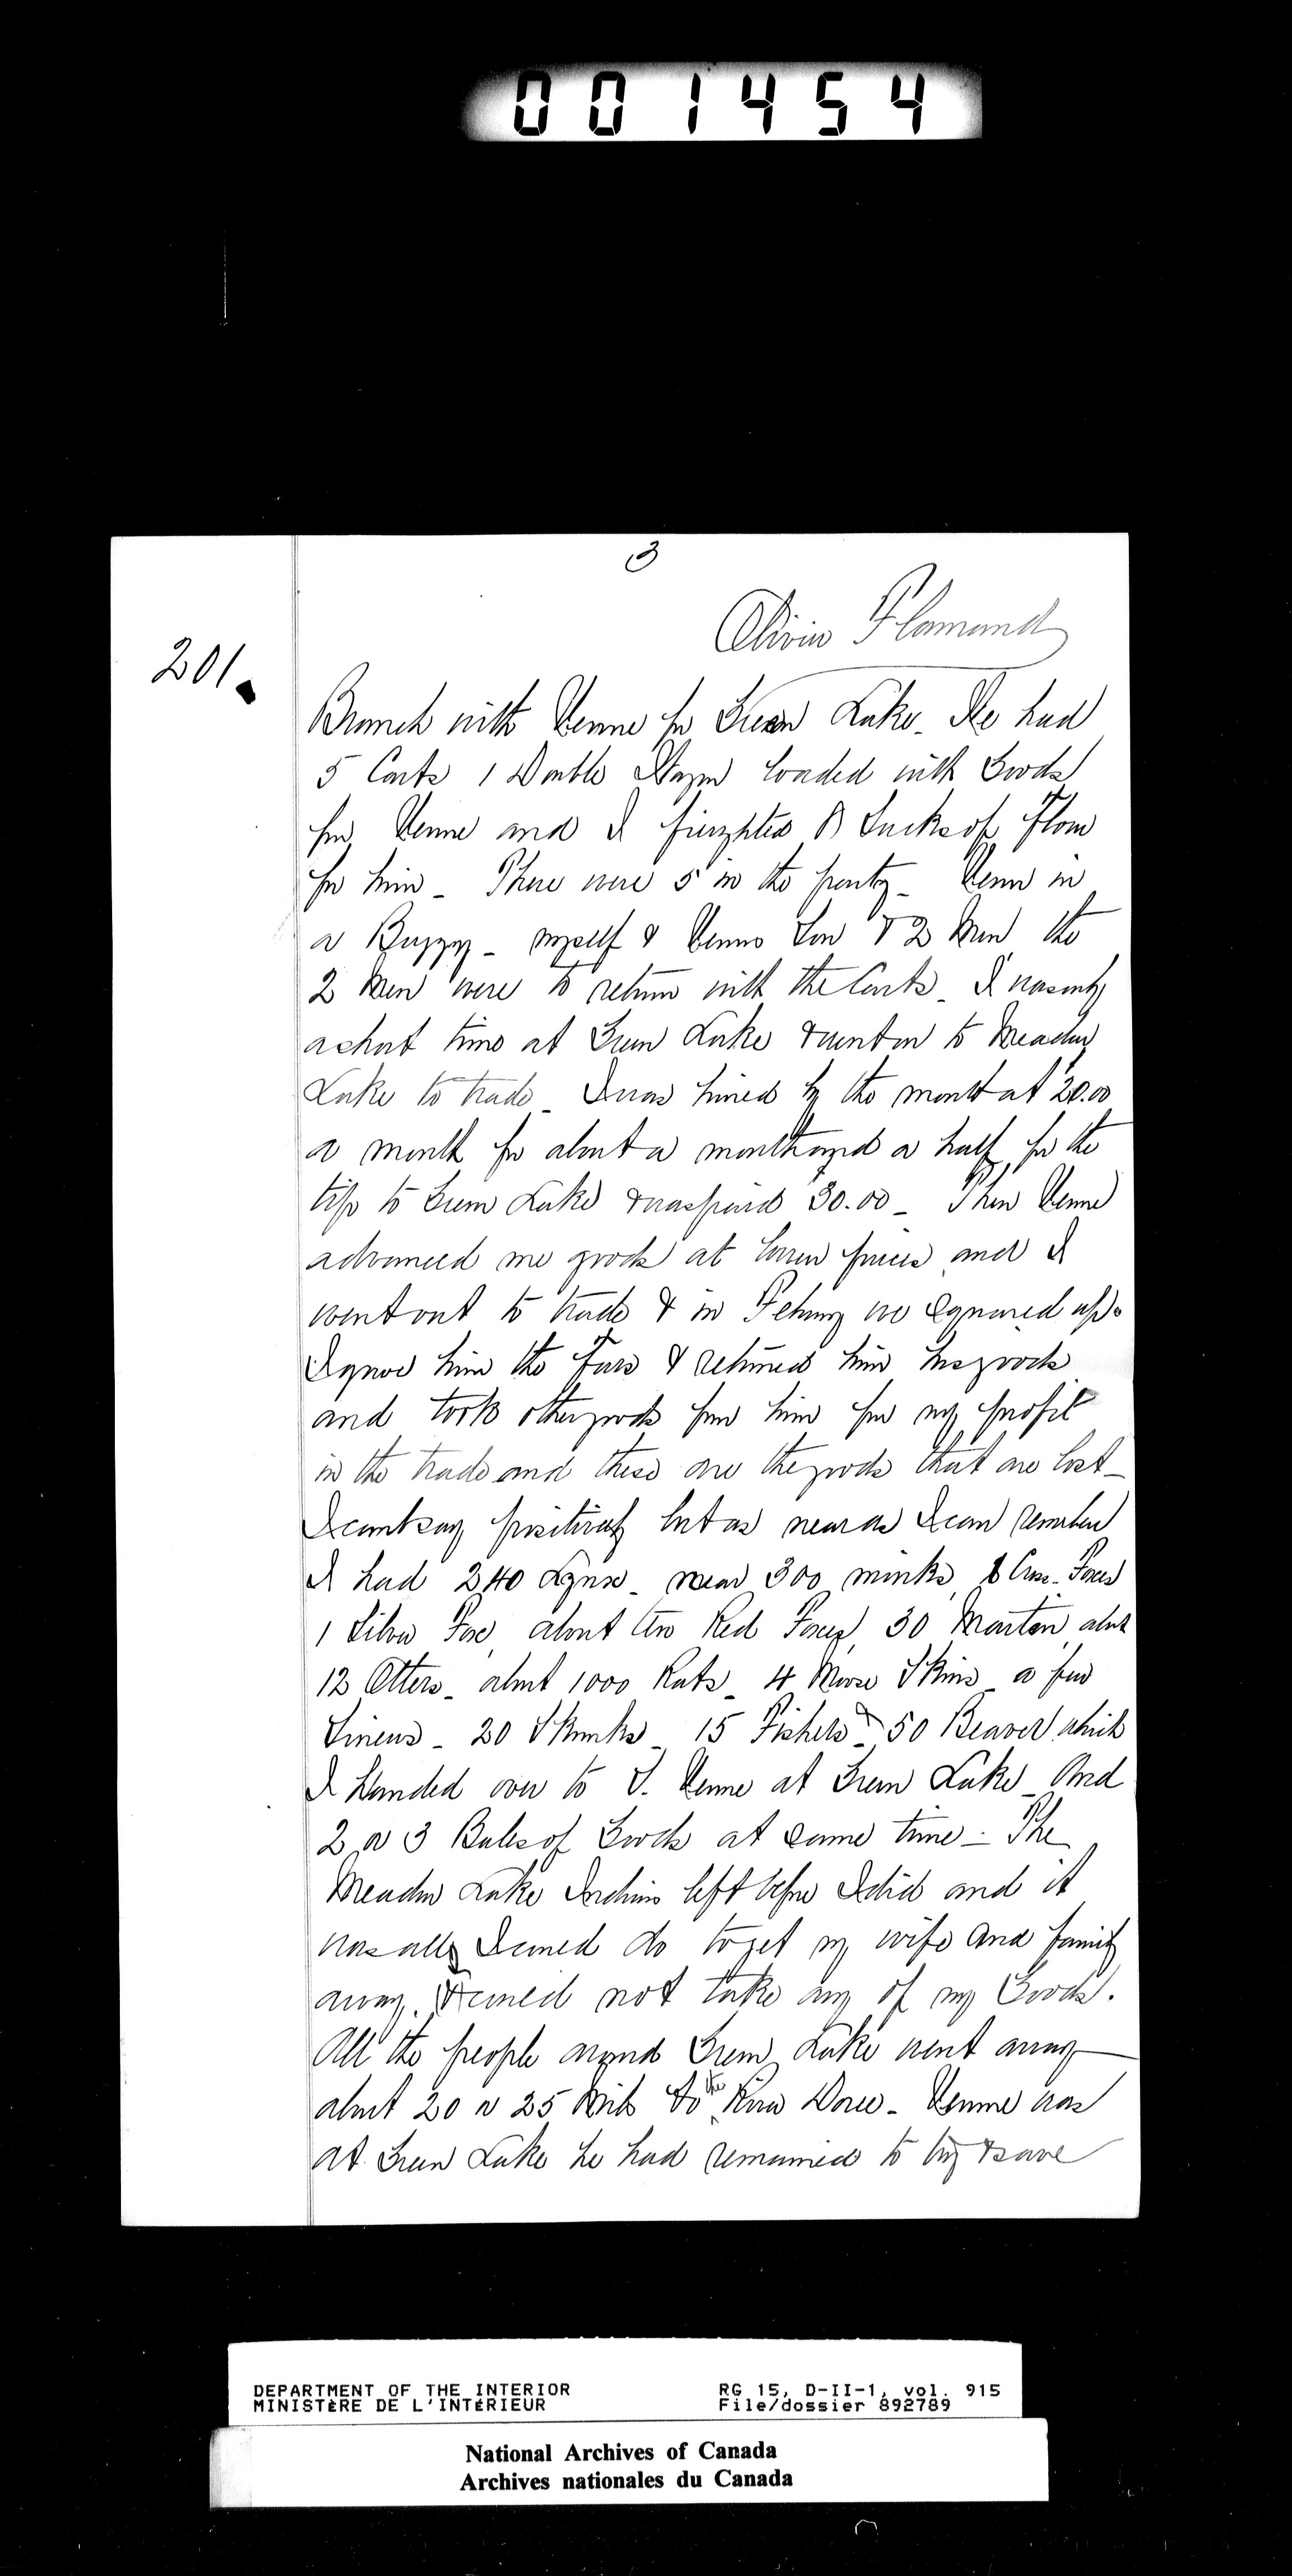 001454
3
Olivier Flamand
201.
Branch with Venne for Green Lake. He had
5 Carts 1 Double Wagon loaded with Goods
for Venne and I freighted Sacks of Flour
for him - There were 5 in the party - Venne in
a Buggy - myself & Vennes Son & 2 Men the
2 Men were to return with the Carts - I was only
a short time at Green Lake & went on to Meadow
Lake to trade - I was hired by the month at 20.00
a month for about a month and a half for the
trip to Green Lake & was paid 30.00 - Then Venne
advanced me goods at prices and I
went out to trade & in we squared up.
I gave him the Furs & returned him his goods
and took other goods from him for my profit
in the trade and these are the goods that are lost -
I cant say positively but as near as I can remember
I had 240 Lynx - near 300 minks, Cross Foxes
1 Silver Fox, about ten Red Foxes, 30 Marten, about
12 Otters - about 1000 Rats - 4 Moose Skins - a few
20 Skunks - 15 Fishers & 50 Beaver which
I handed over to S. Venne at Green Lake - And
2 or 3 Bales of Goods at same time - The
Meadow Lake Indians left before I did and it
was all I could do to get my wife and family
away. I could not take any of my Goods.
All the people around Green Lake went away
about 20 or 25 Mils to the River - Venne was
at Green Lake he had remained to try & save
DEPARTMENT OF THE INTERIOR
MINISTÈRE DE L'INTÉRIEUR
RG 15, D-II-1, vol. 915
File/dossier 892789
National Archives of Canada
Archives nationales du Canada